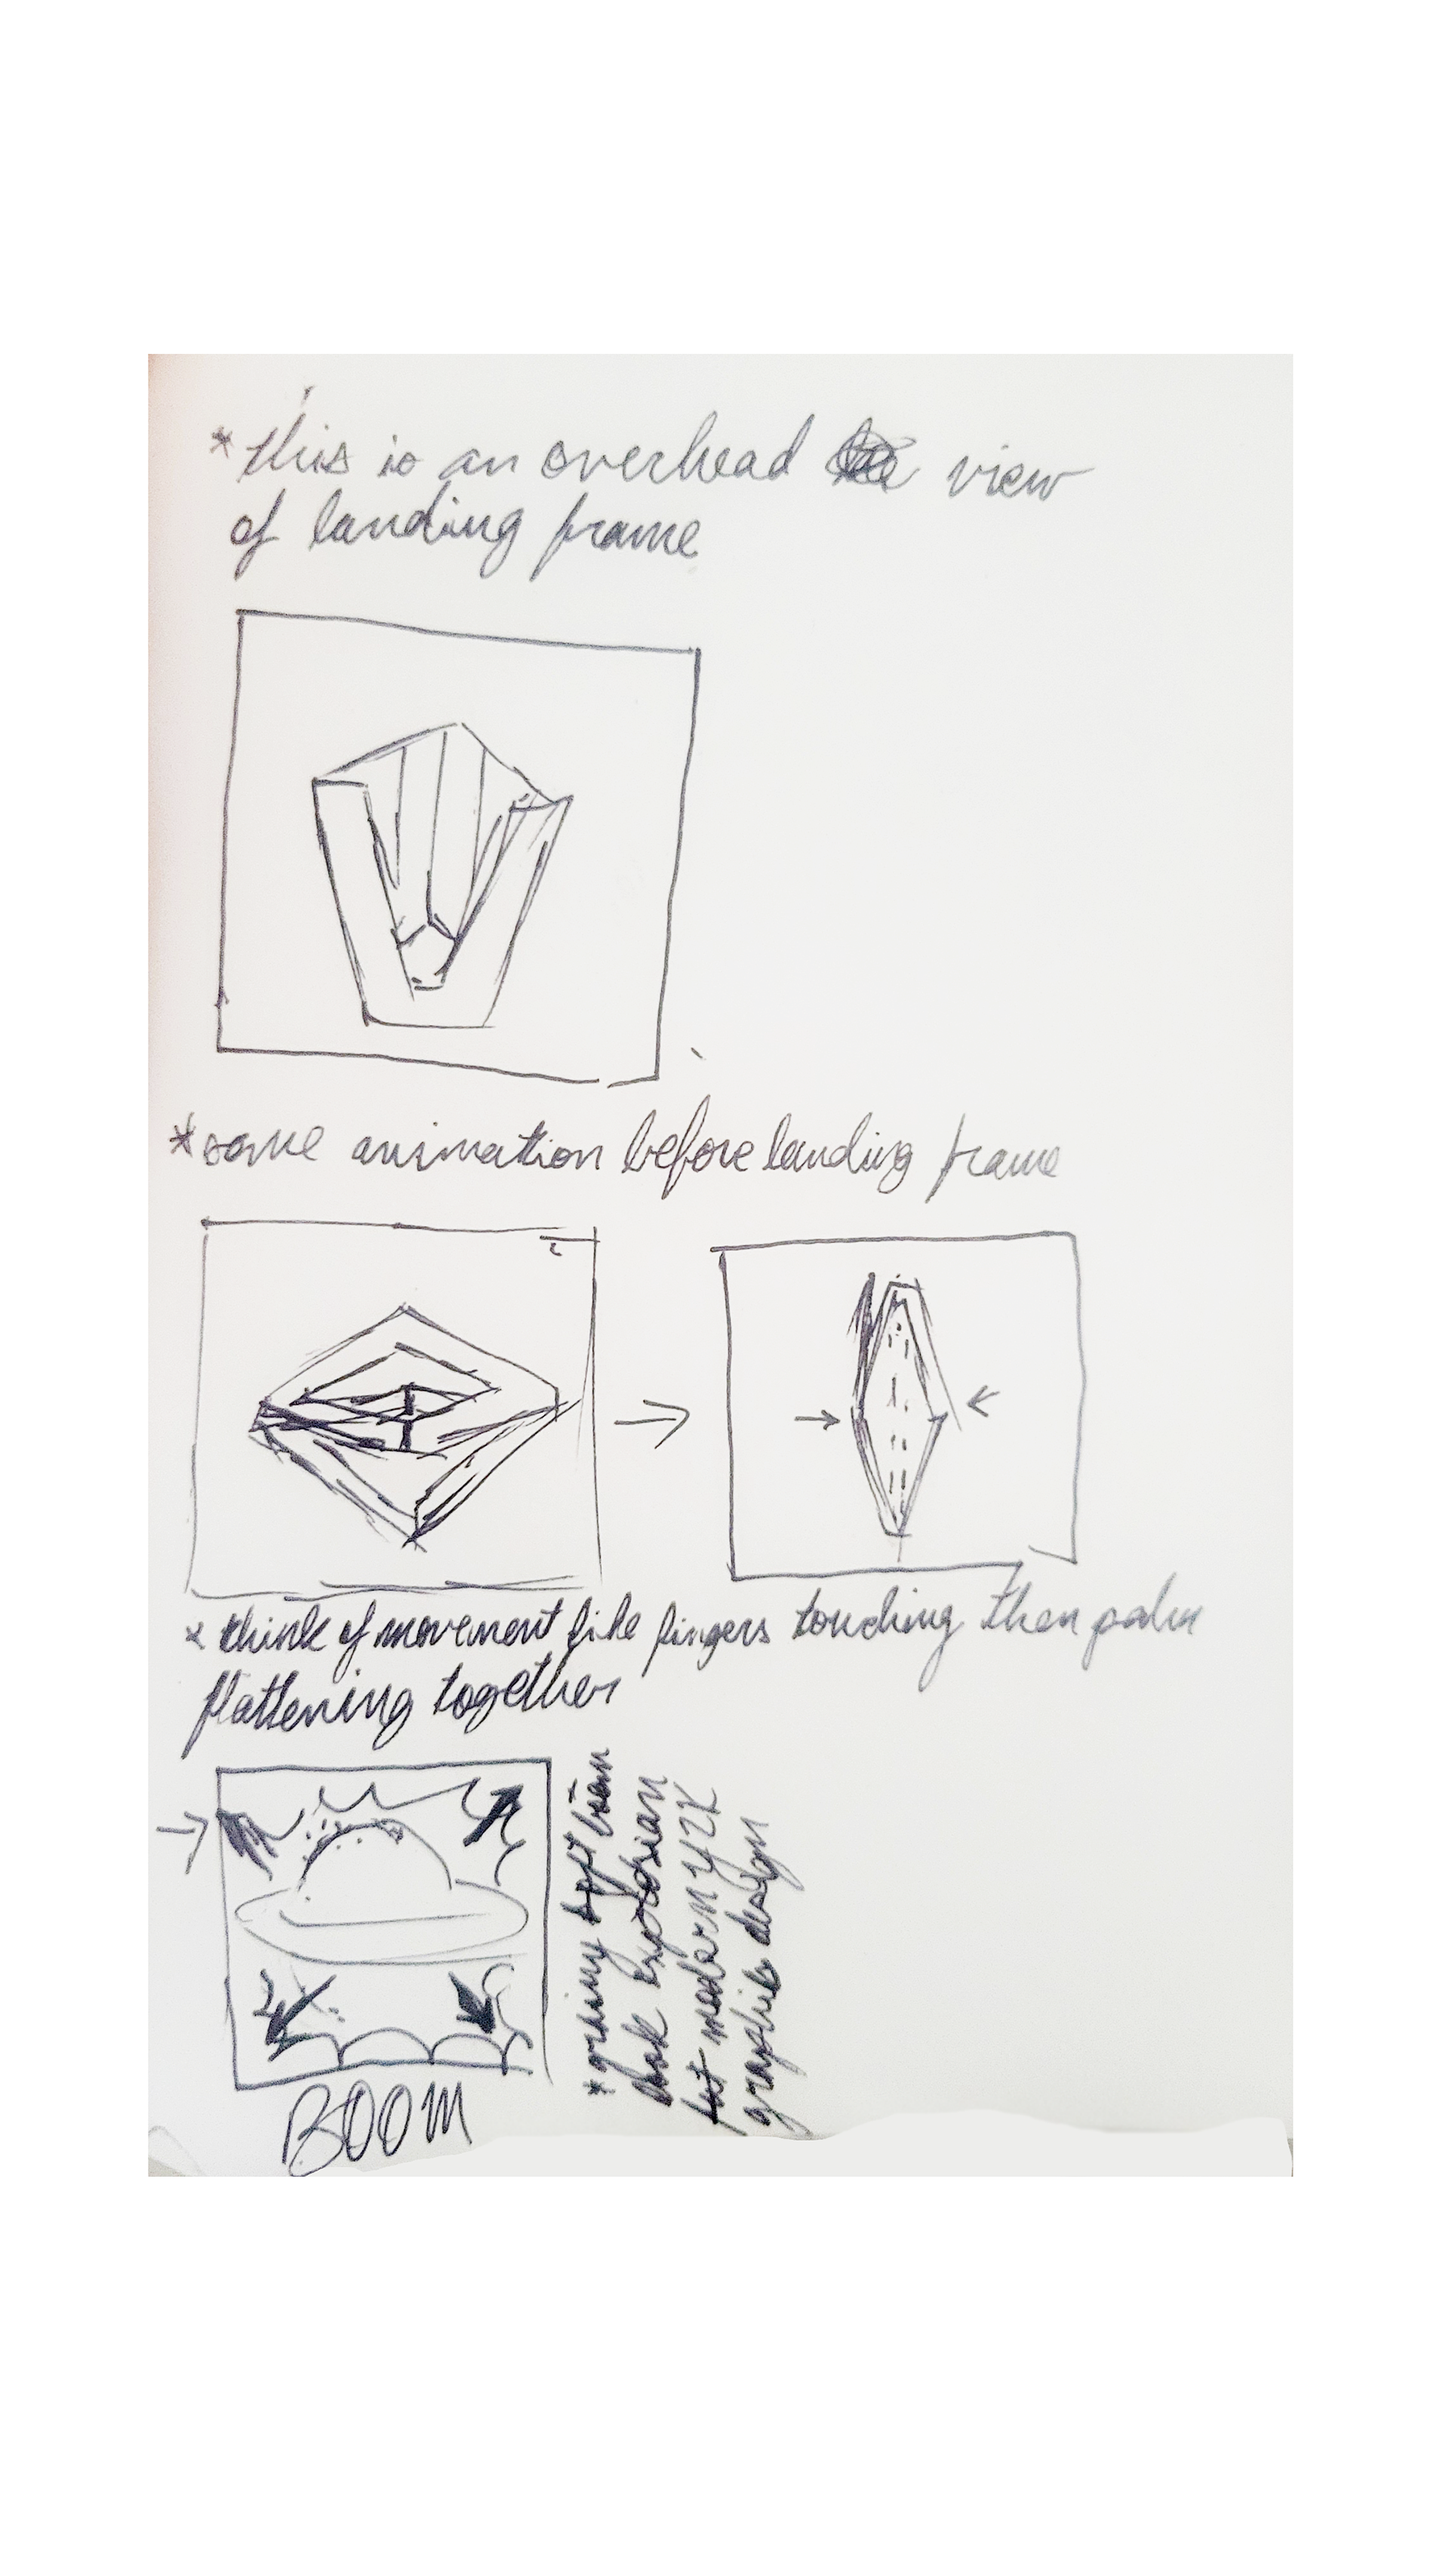 * this is an overhead view
of landing frame
* some animation before landing frame
* think of movement like fingers touching then palm
flattening together
* grainy soft
look explosian
but modern Y2K
graphic design
BOOM